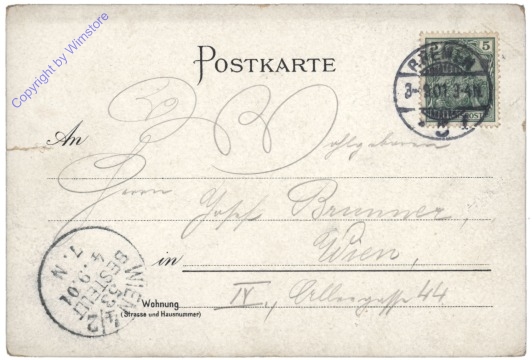 Copyright by Wimstore
POSTKARTE
5
BREMEN
3-9.01 3-4N
An
Wohlgeboren
Herrn Josef Brunner,
in Wien,
Wohnung
(Strasse und Hausnummer)
IV., Alleegasse 44
WIEN 53
BESTELLT
4.9.01
7.N